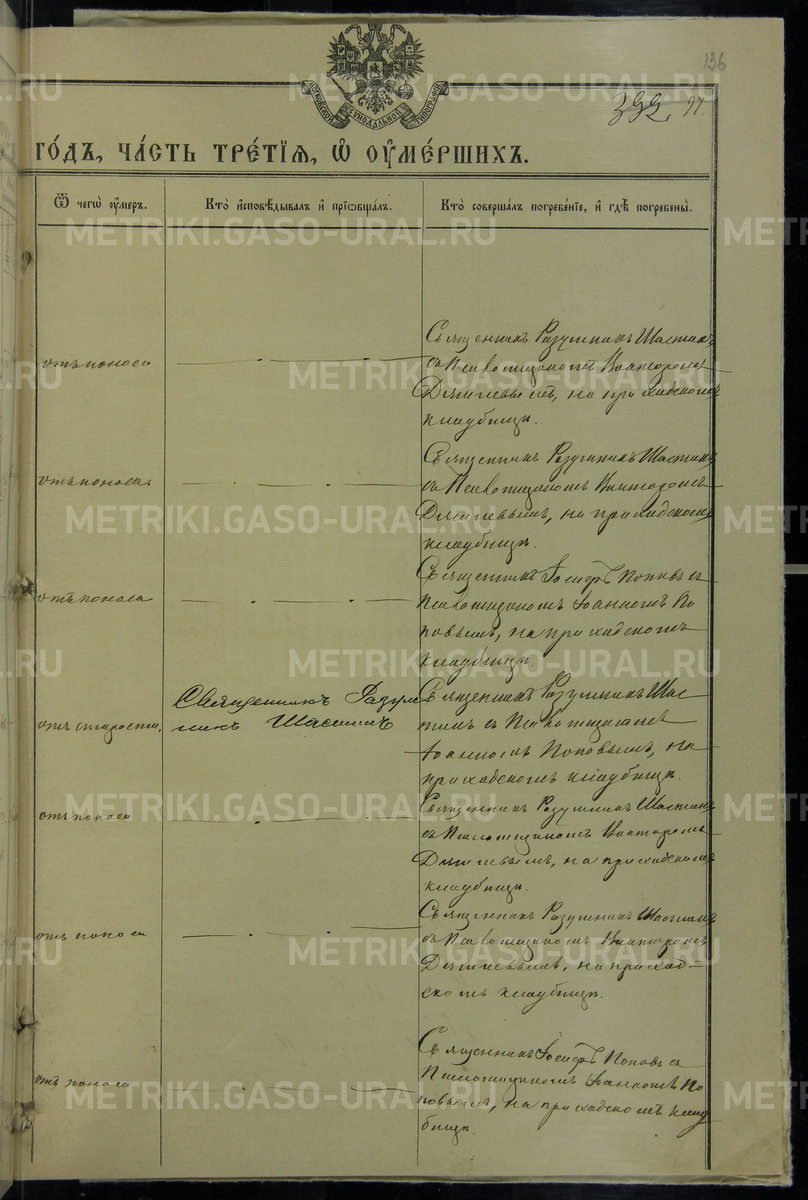 136
392. 97.
МОСКОВСКОЙ СѴНОДАЛЬНОЙ ТИПОГРАФІИ
го́дъ, ча́сть тре́тїѧ, ѡ҆ ᲂу҆ме́ршихъ.
Ѿ чегѡ̀ ᲂу҆́меръ.
Кто̀ и҆сповѣ́дывалъ и҆ прїѡбща́лъ.
Кто̀ соверша́лъ погребе́нїе, и҆ гдѣ̀ погребены̀.
отъ поноса
Священникъ Разумникъ Шастинъ
съ Псаломщикомъ Викторомъ
на приходскомъ
кладбищѣ.
отъ поноса
Священникъ Разумникъ Шастинъ
съ Псаломщикомъ Викторомъ
на приходскомъ
кладбищѣ.
отъ поноса
Священникъ Іосифъ Поповъ съ
Псаломщикомъ Іоанномъ По
повымъ, на приходскомъ
кладбищѣ.
отъ старости,
Священникъ Разум
никъ Шастинъ
Священникъ Разумникъ Шас
тинъ съ Псаломщикомъ
Іоанномъ Поповымъ, на
приходскомъ кладбищѣ.
отъ поноса
Священникъ Разумникъ Шастинъ
съ Псаломщикомъ Викторомъ
на приходскомъ
кладбищѣ.
отъ поноса
Священникъ Разумникъ Шастинъ
съ Псаломщикомъ Викторомъ
на приход-
скомъ кладбищѣ.
отъ поноса
Священникъ Іосифъ Поповъ съ
Псаломщикомъ Іоанномъ По
повымъ, на приходскомъ клад
бищѣ
METRIKI.GASO-URAL.RU